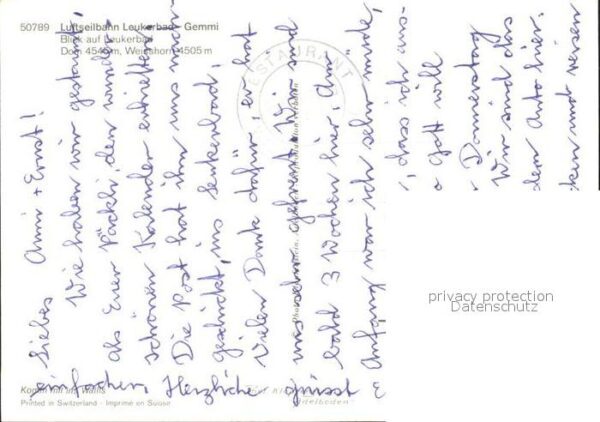 50789 Luftseilbahn Leukerbad - Gemmi
Blick auf Leukerbad
Dom 4545 m, Weisshorn 4505 m
RESTAURANT
Liebes Anni + Ernst!
Wie haben wir gestaunt,
als Euer Päckli, der wunder-
schönen Kalender eintraf.
Die Post hat ihn uns nach-
geschickt, ins Leukerbad,
Vielen Dank dafür, er hat
uns sehr gefreut. Wir sind
bald 3 Wochen hier. Am
Anfang war ich sehr müde,
dass ich aus-
Gott will
Donnerstag
Wir sind das
dem Auto hier.
ken und reisen
einfacher. Herzliche grüsst
privacy protection
Datenschutz
Komm mit ins Wallis
Printed in Switzerland - Imprimé en Suisse
Adelboden